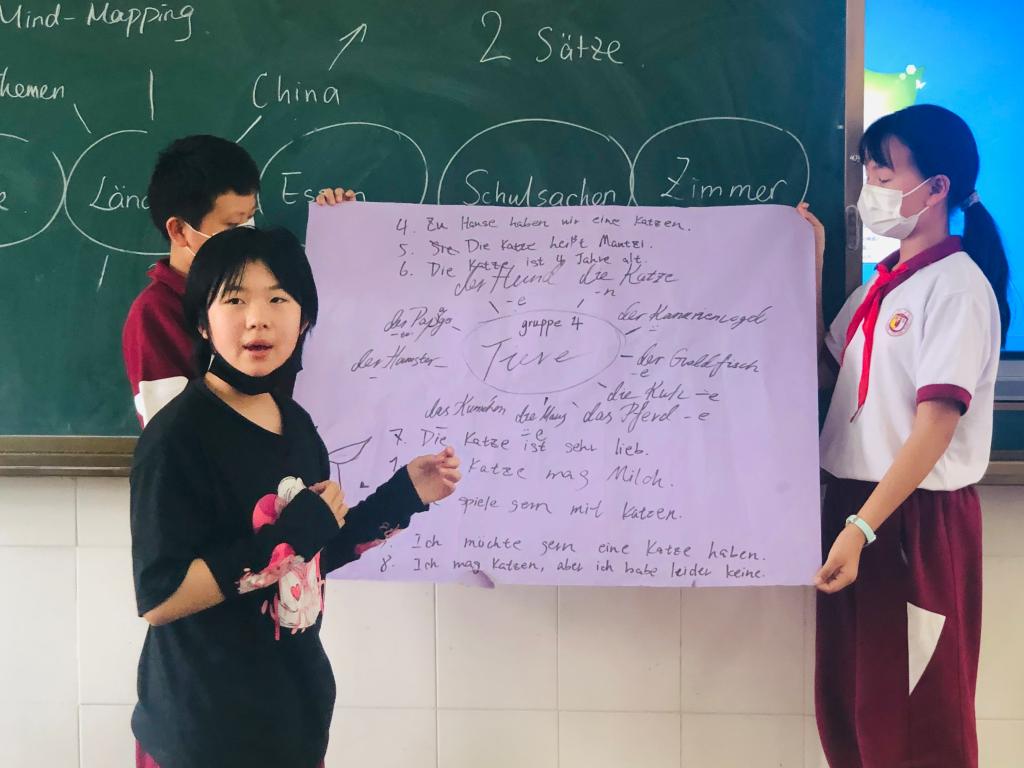 Mind-Mapping
2 Sätze
China
Schulsachen
Zimmer
4. Zu Hause haben wir eine Katzen.
5. Die Katze heißt
6. Die Katze ist 4 Jahre alt.
der Hund die Katze
-e -n
gruppe 4
der Hamster
der Goldfisch
-e
die Kuh -e
die Maus das Pferd -e
-e
7. Die Katze ist sehr lieb.
Katze mag Milch.
spiele gern mit Katzen.
Ich möchte gern eine Katze haben.
8. Ich mag Katzen, aber ich habe leider keine.